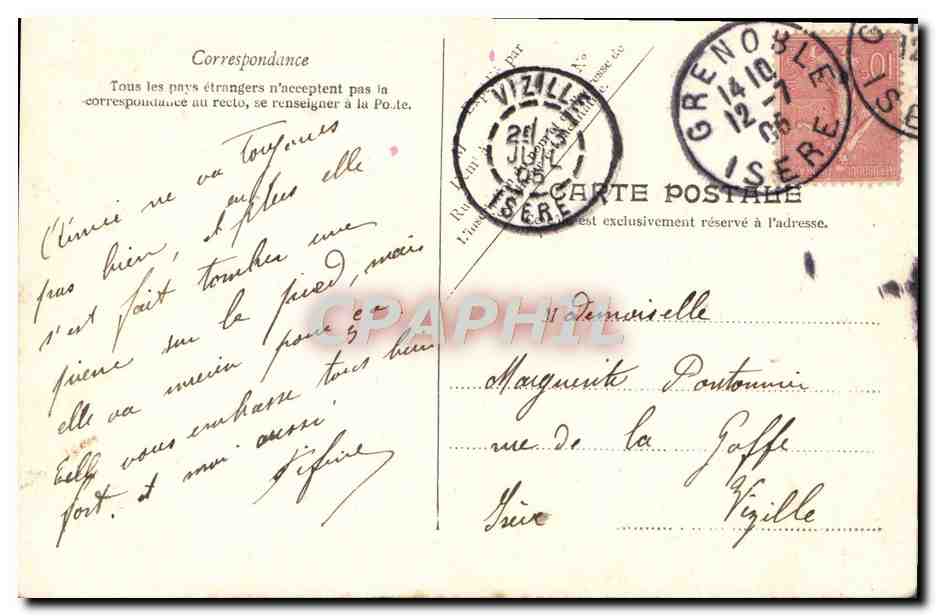 Correspondance
Tous les pays étrangers n'acceptent pas la
correspondance au recto, se renseigner à la Poste.
ne va toujours
pas bien, et plus elle
s'est fait tomber une
pierre sur la pied, mais
elle va mieux pour ça
Elle vous embrasse tous bien
fort. et moi aussi
CARTE POSTALE
est exclusivement réservé à l'adresse.
VIZILLE
ISERE
GRENOBLE
14 10
12 -7
05
ISERE
10
CPAPHIL
Mademoiselle
Marguerite
rue de la Gaffe
Isère Vizille